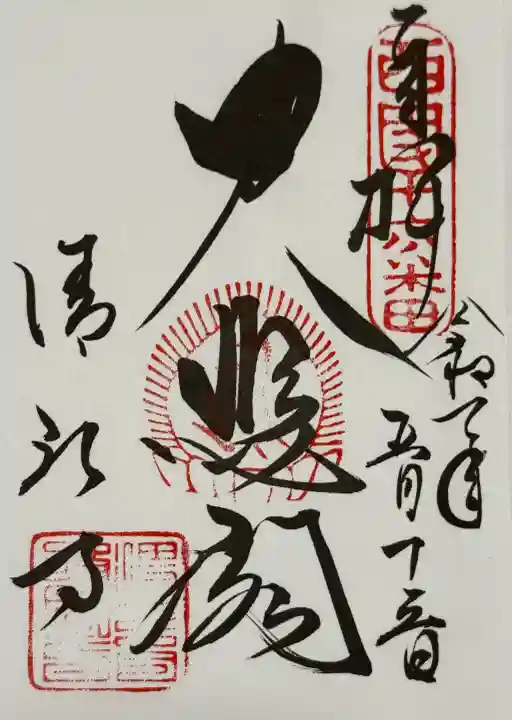 奉拝
西国十六番
令和元年
五月十三日
大悲閣
清水寺